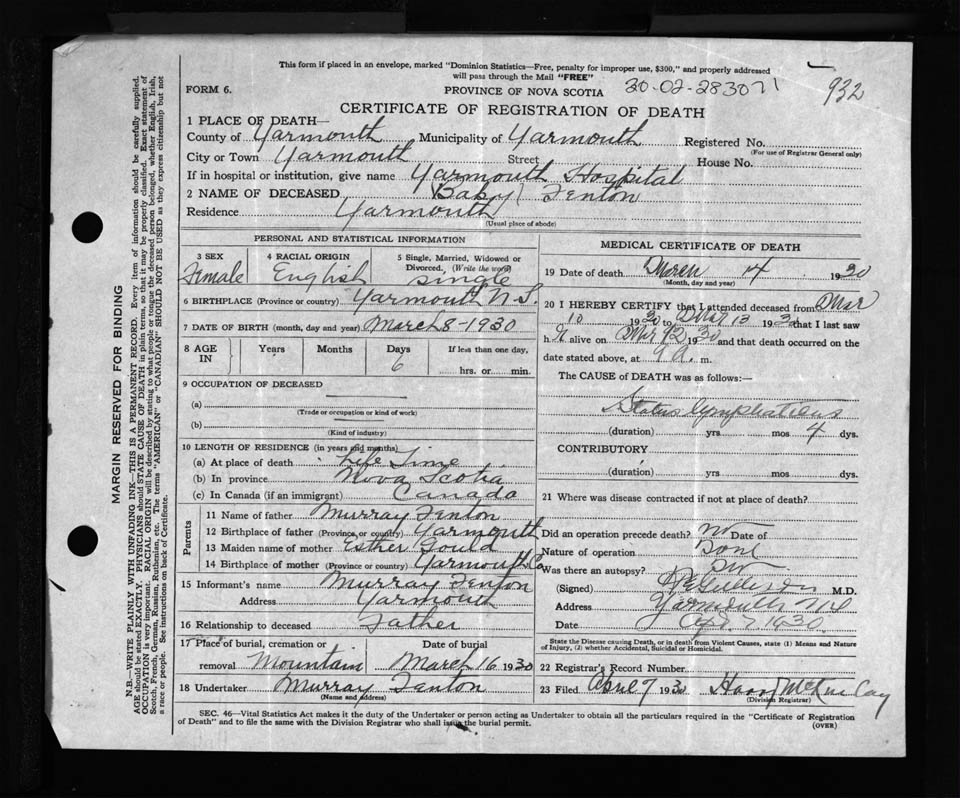 This form if placed in an envelope, marked "Dominion Statistics—Free, penalty for improper use, $300," and properly addressed
will pass through the Mail "FREE"
FORM 6.
PROVINCE OF NOVA SCOTIA
30-02-283071
932
CERTIFICATE OF REGISTRATION OF DEATH
1 PLACE OF DEATH—
County of Yarmouth Municipality of Yarmouth Registered No.
(For use of Registrar General only)
City or Town Yarmouth Street House No.
If in hospital or institution, give name Yarmouth Hospital
2 NAME OF DECEASED (Baby) Fenton
Residence Yarmouth
(Usual place of abode)
PERSONAL AND STATISTICAL INFORMATION
3 SEX 4 RACIAL ORIGIN 5 Single, Married, Widowed or Divorced, (Write the word)
Female English Single
6 BIRTHPLACE (Province or country) Yarmouth N.S.
7 DATE OF BIRTH (month, day and year) March 8-1930
8 AGE IN Years Months Days If less than one day,
6 hrs. or min.
9 OCCUPATION OF DECEASED
(a)
(Trade or occupation or kind of work)
(b)
(Kind of industry)
10 LENGTH OF RESIDENCE (in years and months)
(a) At place of death Life Time
(b) In province Nova Scotia
(c) In Canada (if an immigrant) Canada
Parents
11 Name of father Murray Fenton
12 Birthplace of father (Province or country) Yarmouth
13 Maiden name of mother Esther Gould
14 Birthplace of mother (Province or country) Yarmouth Co
15 Informant's name Murray Fenton
Address Yarmouth
16 Relationship to deceased Father
17 Place of burial, cremation or Date of burial
removal Mountain March 16 1930
18 Undertaker Murray Fenton
(Name and address)
MEDICAL CERTIFICATE OF DEATH
19 Date of death March 14 1930
(Month, day and year)
20 I HEREBY CERTIFY that I attended deceased from Mar
10 1930 to Mar 13 1930 that I last saw
h alive on Mar 12 1930 and that death occurred on the
date stated above, at 9 a. m.
The CAUSE of DEATH was as follows:—
Status lymphaticus
(duration) yrs mos 4 dys.
CONTRIBUTORY
(duration) yrs mos dys.
21 Where was disease contracted if not at place of death?
Did an operation precede death? no Date of
Nature of operation
Was there an autopsy?
(Signed) M.D.
Address Yarmouth N.S.
Date Apr. 7 1930
State the Disease causing Death, or in death from Violent Causes, state (1) Means and Nature
of Injury, (2) whether Accidental, Suicidal or Homicidal.
22 Registrar's Record Number
23 Filed April 7 1930 Harry
(Division Registrar)
SEC. 46—Vital Statistics Act makes it the duty of the Undertaker or person acting as Undertaker to obtain all the particulars required in the "Certificate of Registration
of Death" and to file the same with the Division Registrar who shall issue the burial permit.
(OVER)
MARGIN RESERVED FOR BINDING
N.B.—WRITE PLAINLY WITH UNFADING INK—THIS IS A PERMANENT RECORD. Every item of information should be carefully supplied.
AGE should be stated EXACTLY. PHYSICIANS should STATE CAUSE OF DEATH in plain terms, so that it may be properly classified. Exact statement of
OCCUPATION is very important. RACIAL ORIGIN will be described by stating to what people or tongue the deceased person belonged, whether English, Irish,
Scotch, French, German, Russian, Ruthenian, etc. The terms "AMERICAN" or "CANADIAN" SHOULD NOT BE USED as they express citizenship but not
a race or people. See instructions on back of Certificate.